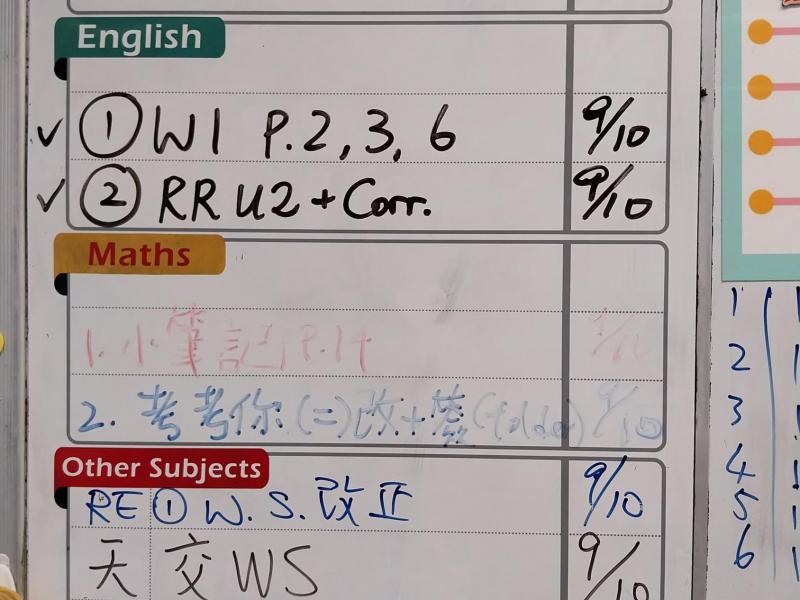 English
✓ ① W1 P.2, 3, 6 9/10
✓ ② RR U2 + Corr. 9/10
Maths
1. 小筆記 P.14
2. 考考你(二)改+簽(folder) 9/10
Other Subjects
RE ① W.S. 改正 9/10
天 交 WS 9/10
1
2
3
4
5
6